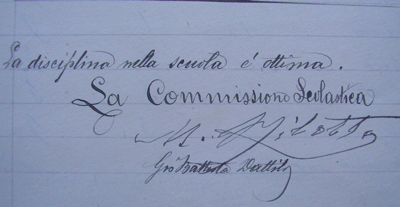 La disciplina nella scuola é ottima.
La Commissione Scolastica
Gio Battista